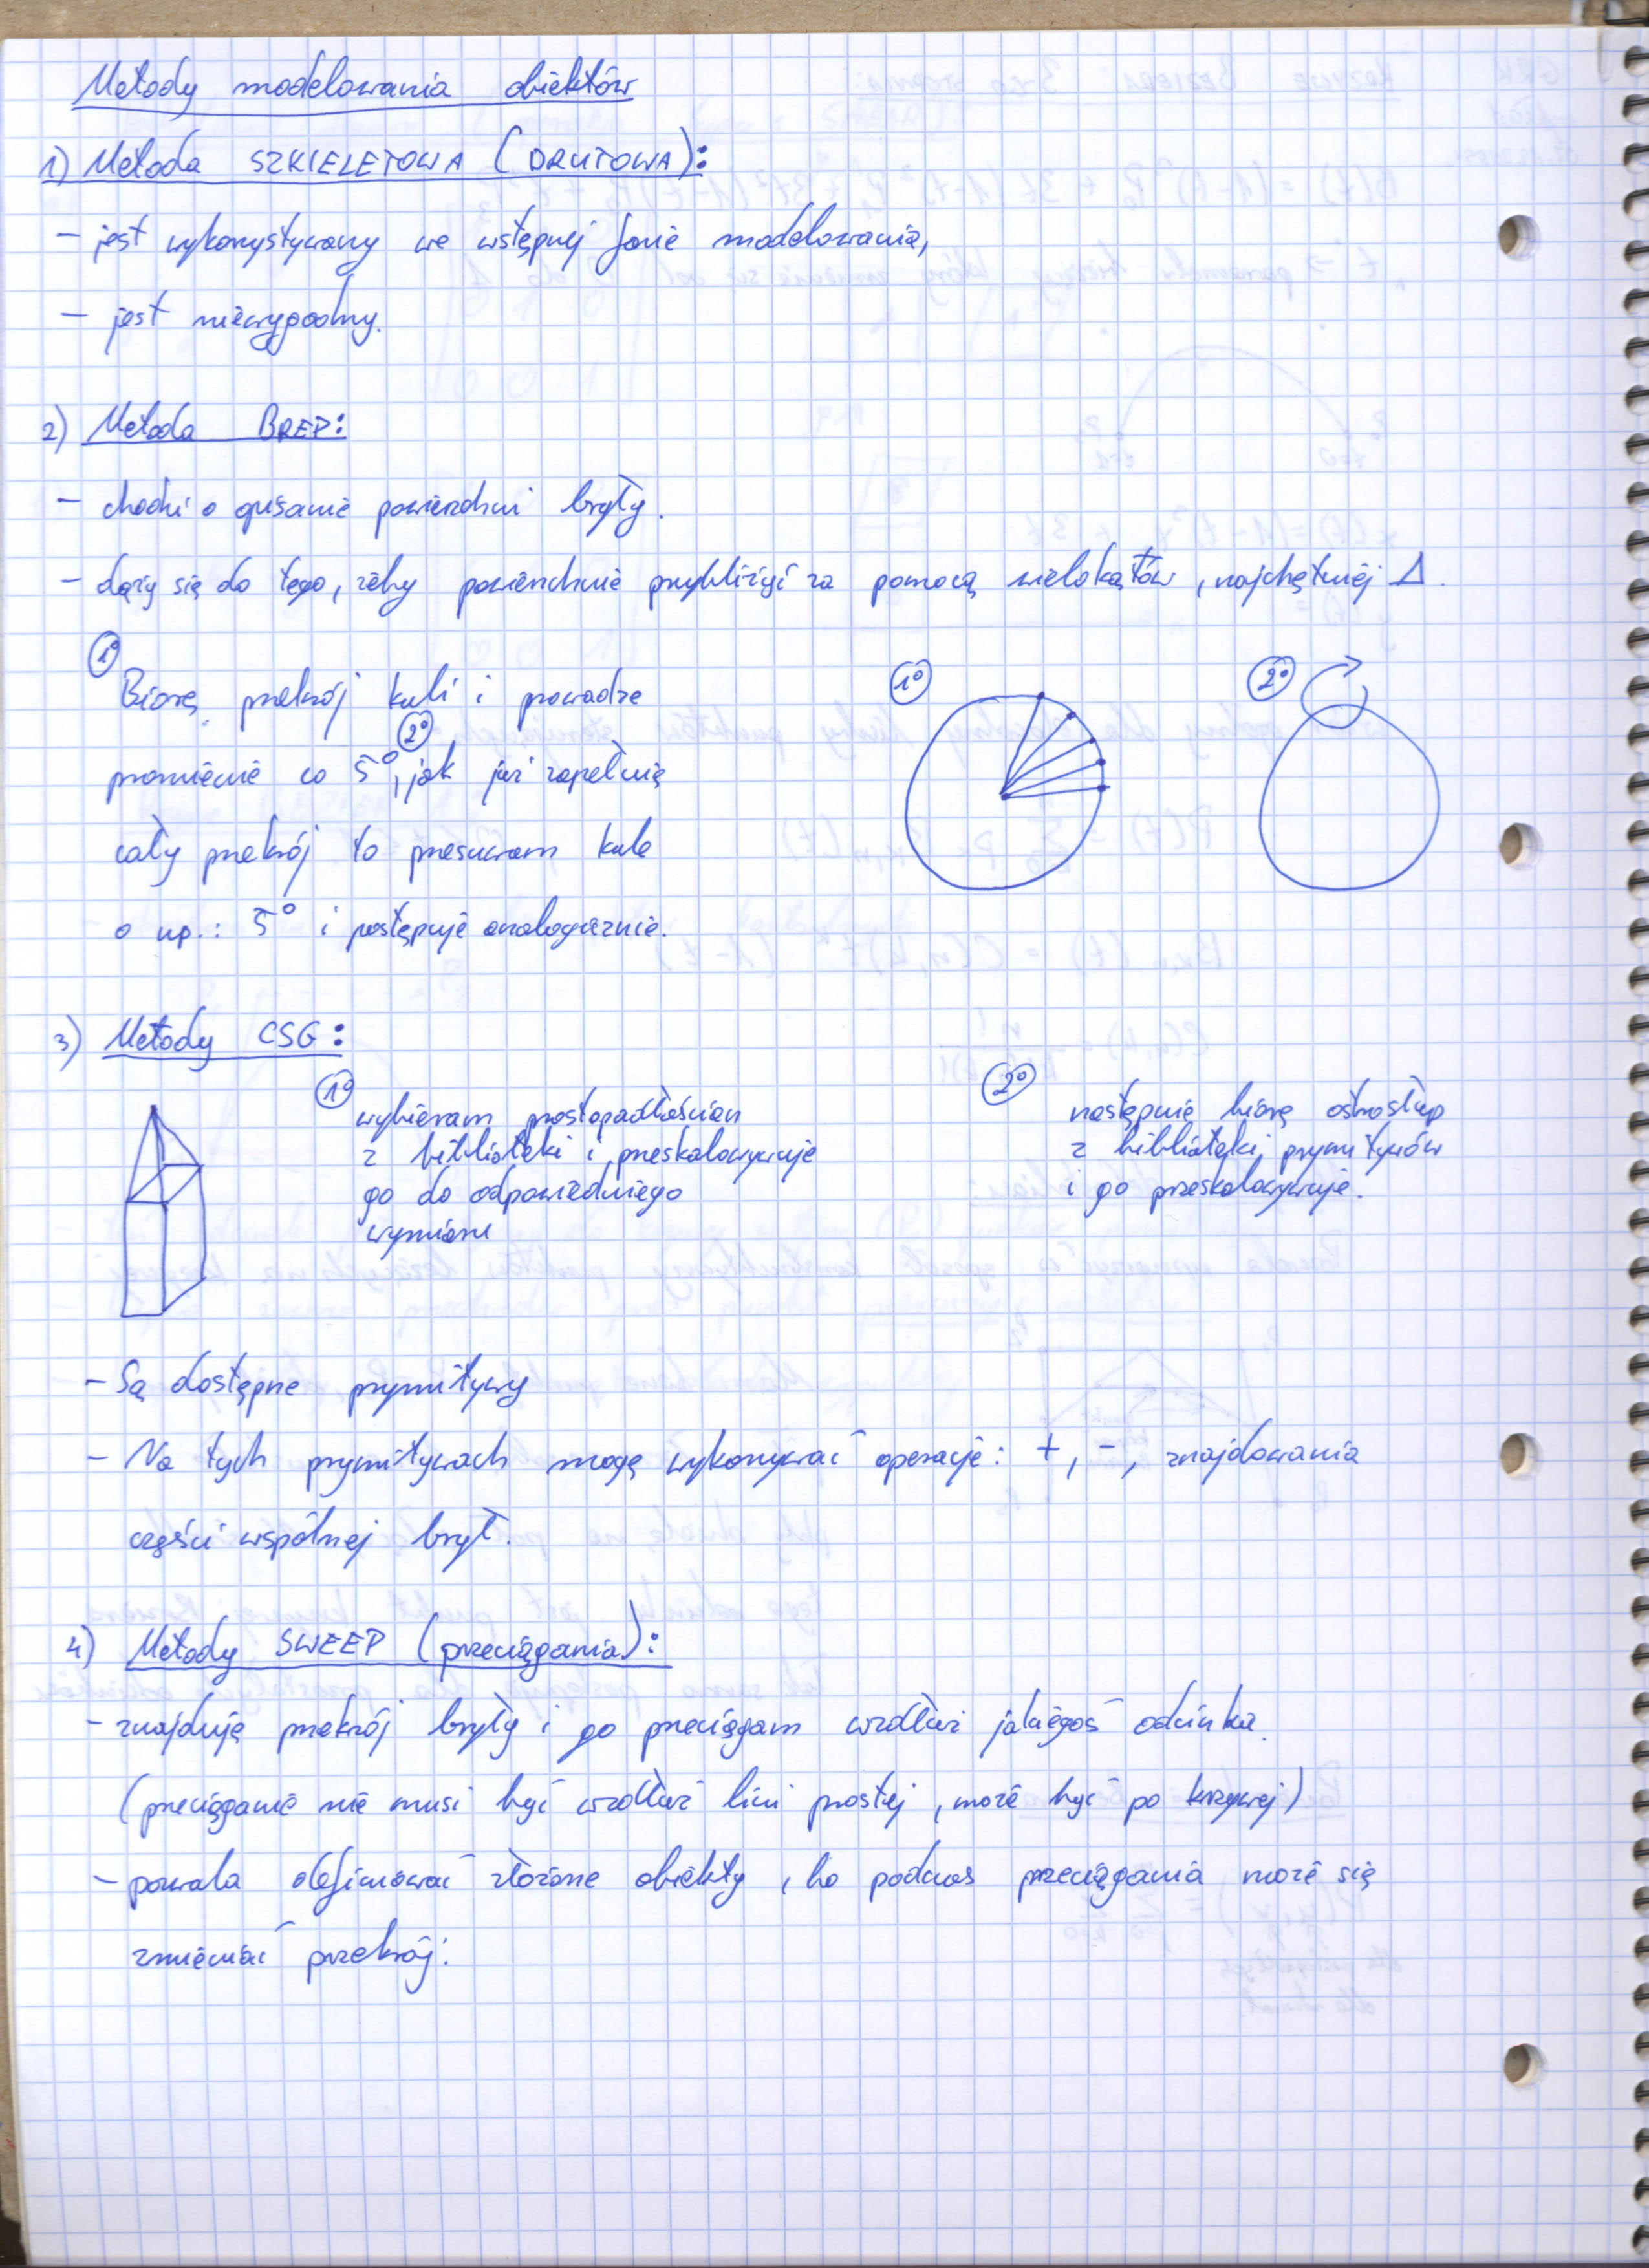 Metody modelowania obiektów
1) Metoda SZKIELETOWA (DRUTOWA):
- jest wykorzystywany we wstępnej fazie modelowania,
- jest niewygodny.
2) Metoda BREP:
- chodzi o opisanie powierzchni bryły.
- dąży się do tego, żeby powierzchnie przybliżyć za pomocą wielokątów, najchętniej Δ.
1°
Biorę przekrój kuli i prowadze
2°
promienie co 5°, jak już zapełnię
cały przekrój to przesuwam kule
o np.: 5° i postępuje analogicznie.
1°
2°
3) Metody CSG:
1° wybieram prostopadłościan
z biblioteki i przeskalowywuje
go do odpowiedniego
wymiaru
2° następnie biorę ostrosłup
z biblioteki prymitywów
i go przeskalowywuje.
- Są dostępne prymitywy
- Na tych prymitywach mogę wykonywać operacje: +, -, znajdowania
części wspólnej brył.
4) Metody SWEEP (przeciągania):
- znajduję przekrój bryły i go przeciągam wzdłuż jakiegoś odcinka.
(przeciąganie nie musi być wzdłuż lini prostej, może być po krzywej)
- pozwala definiować złożone obiekty, bo podczas przeciągania może się
zmieniać przekrój.